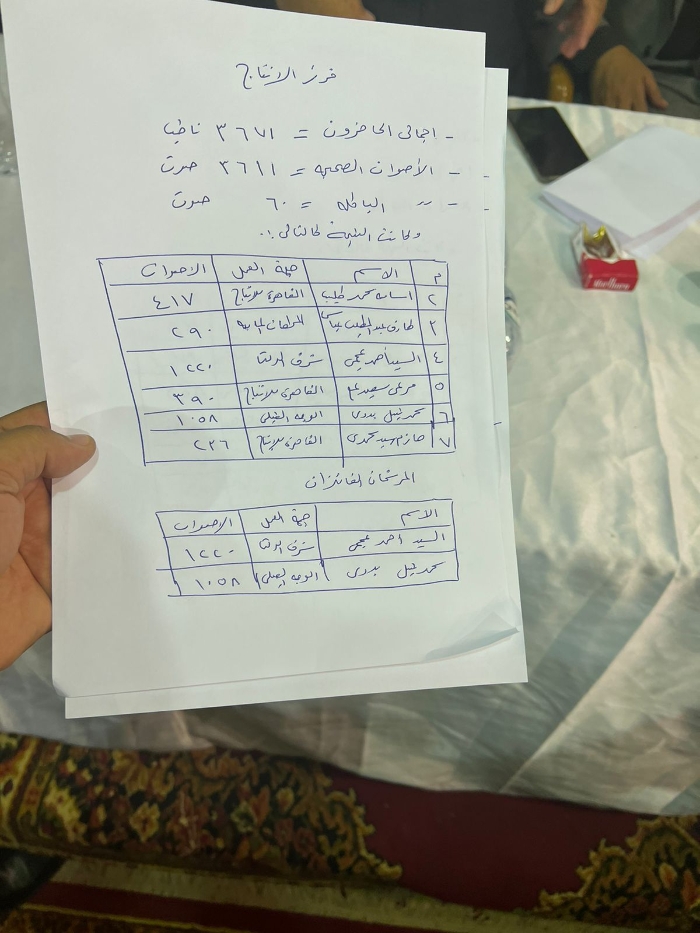 فرز الانتاج
- اجمالى الحاضرون = ٣٦٧١ ناخبا
- الأصوات الصحيحه = ٣٦١١ صوت
- " الباطله = ٦٠ صوت
وكانت النتيجة كالتالى :.
م الاسم جهة العمل الاصوات
٢ اسامه محمد خطيب القاهرة للانتاج ٤١٧
٣ طارق عبد اللطيف عباس المحطات المائيه ٢٩٠
٤ السيد أحمد عجمى شرق الدلتا ١٢٢٠
٥ مرعى سعيد القاهرة للانتاج ٣٩٠
٦ محمد نبيل بدوى الوجه القبلى ١٠٥٨
٧ حازم سيد حمدى القاهرة للانتاج ٢٣٦
المرشحان الفائزان
الاسم جهة العمل الاصوات
السيد أحمد عجمى شرق الدلتا ١٢٢٠
محمد نبيل بدوى الوجه القبلى ١٠٥٨
Marlboro